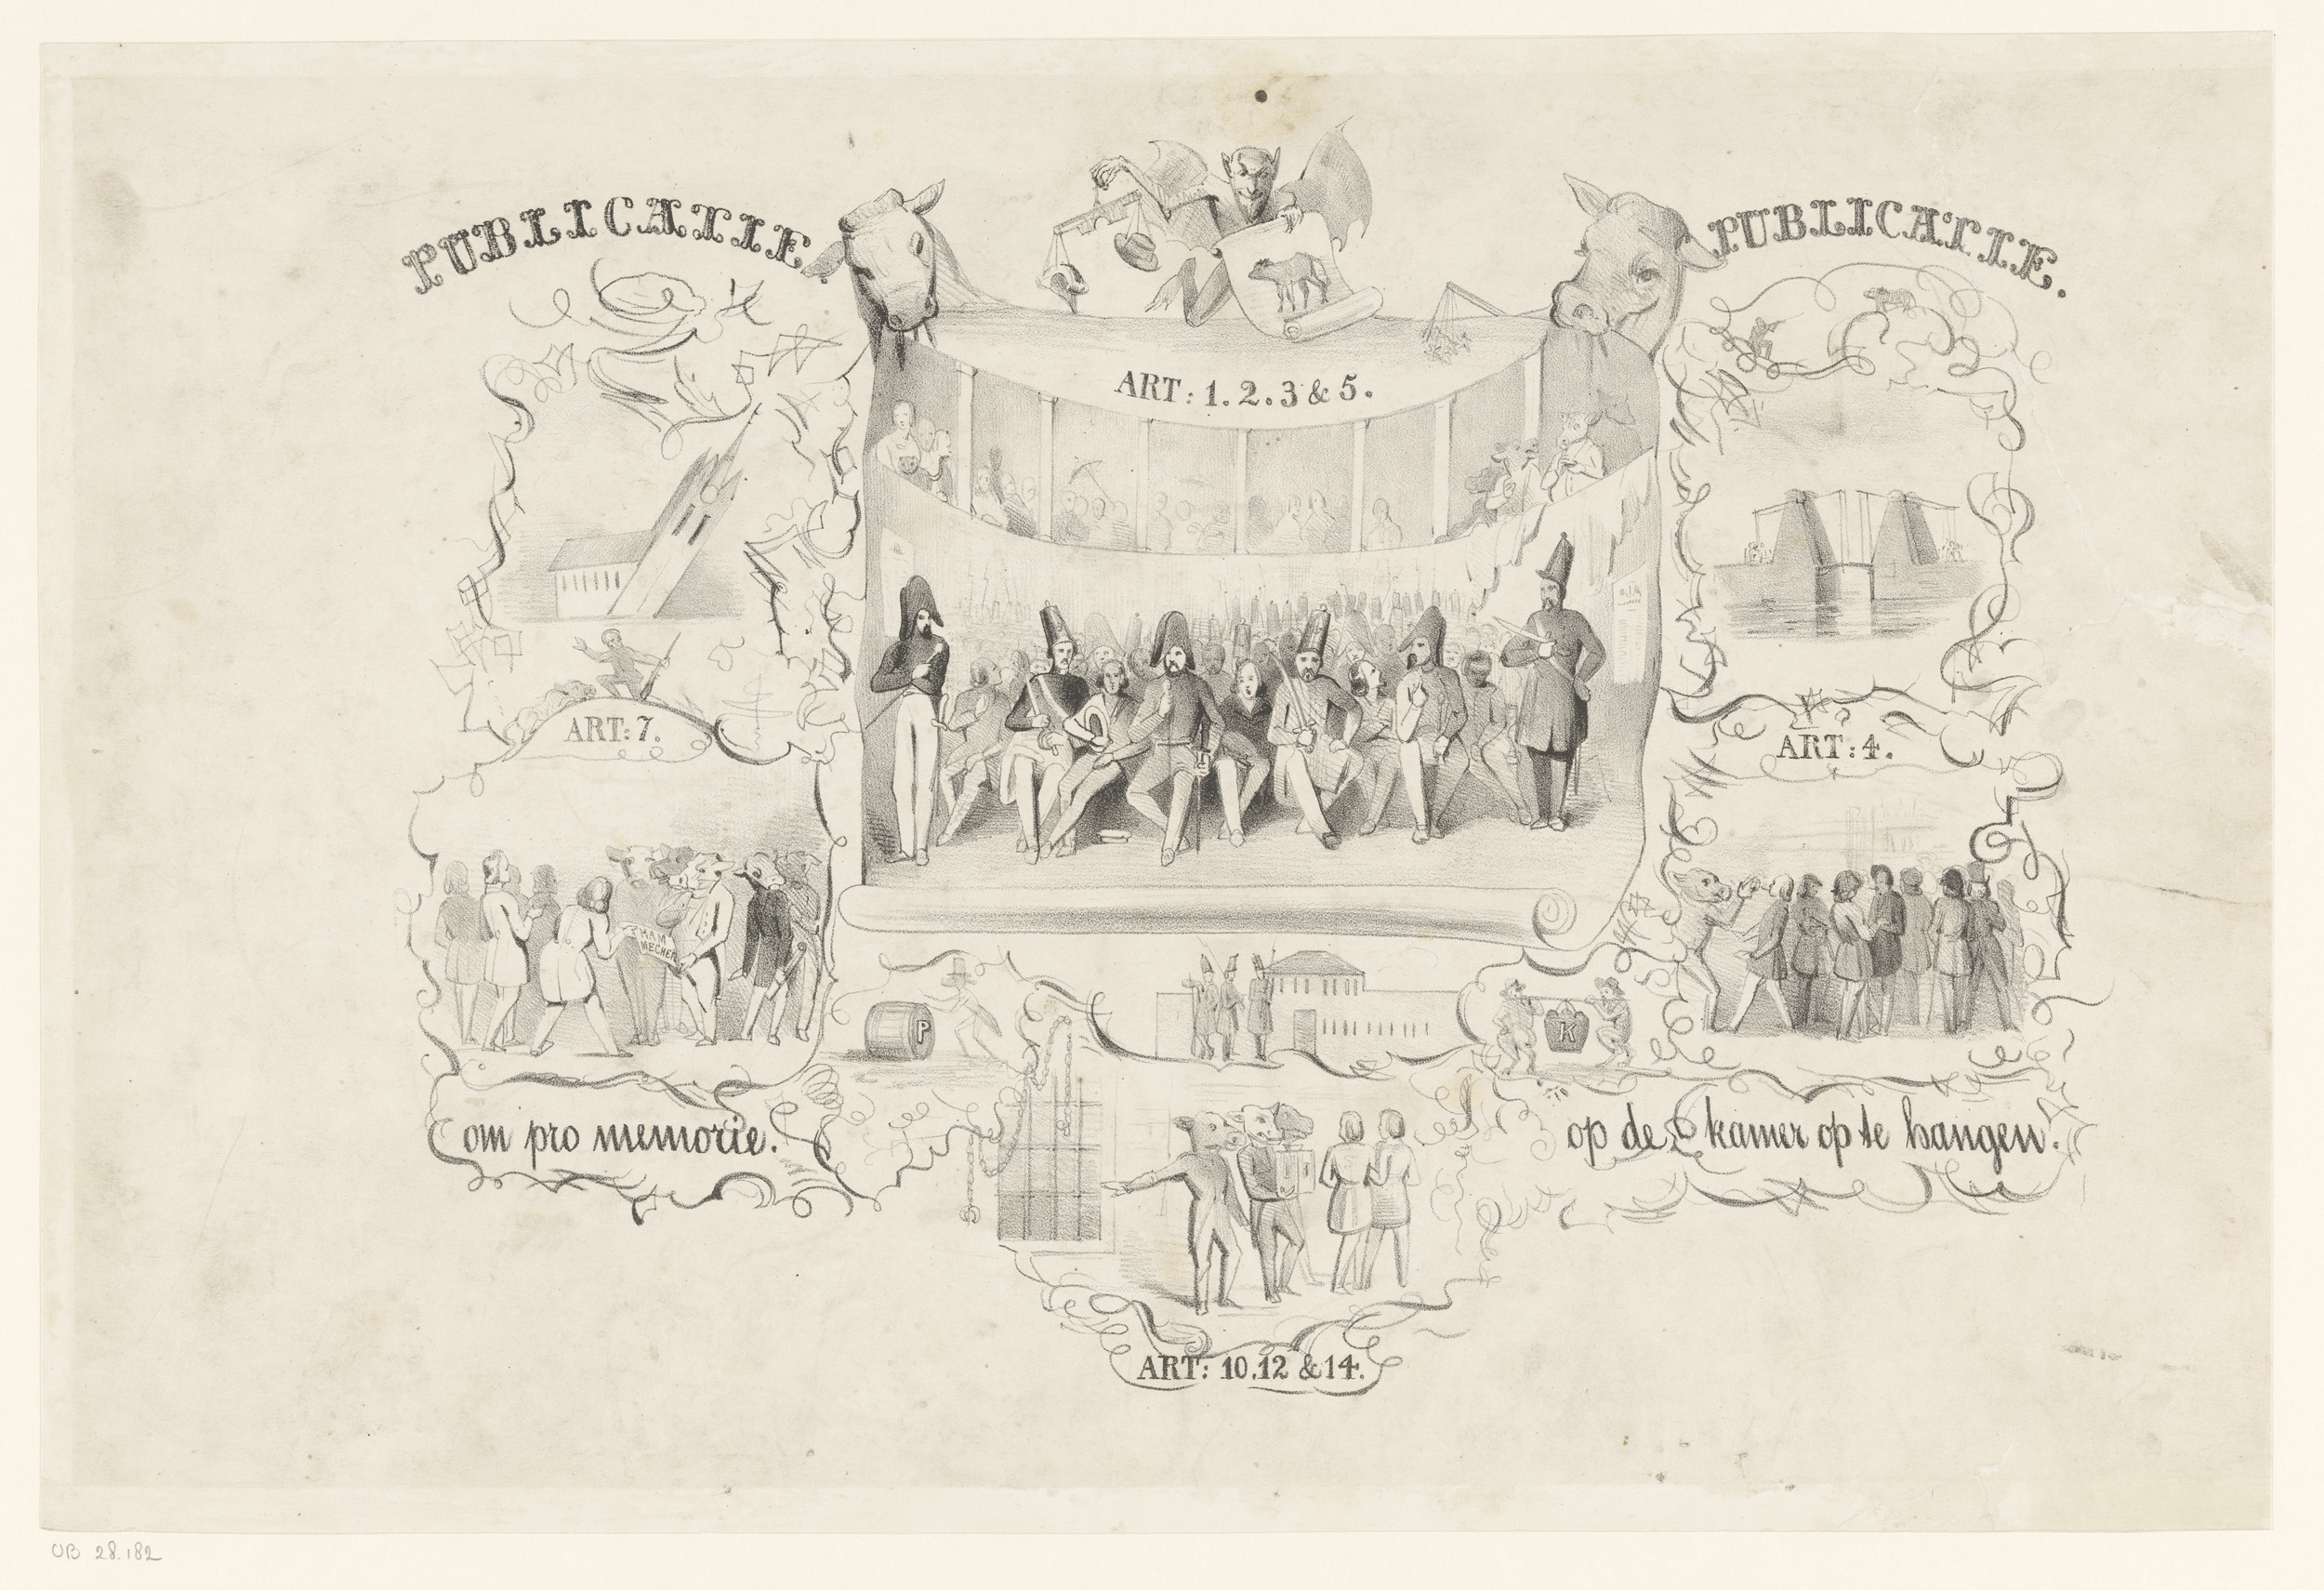 PUBLICATIE.
PUBLICATIE.
ART: 1. 2. 3 & 5.
ART: 7.
ART: 4.
P
K
om pro memorie.
op de kamer op te hangen.
ART: 10. 12 & 14.
UB 28.182